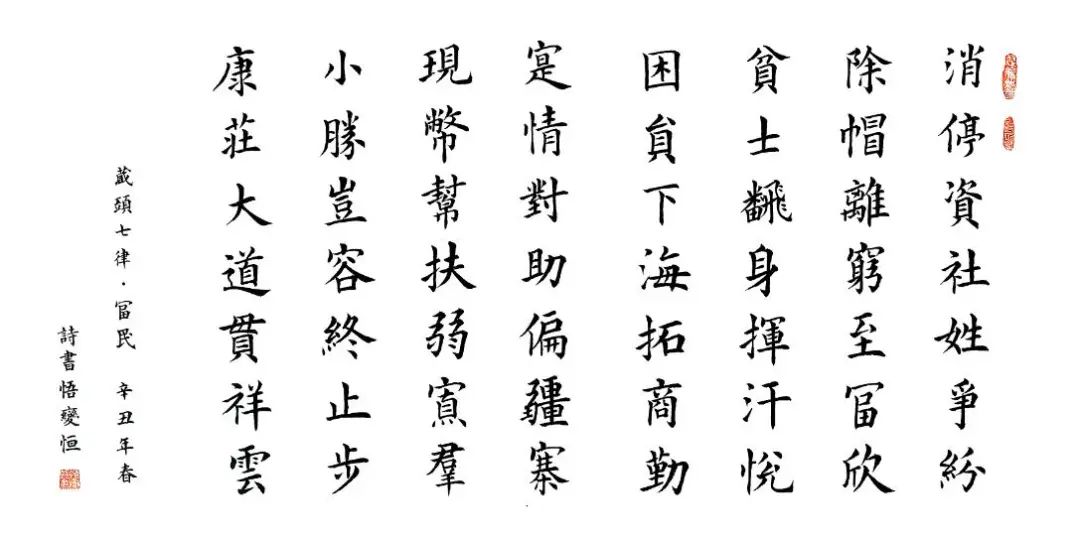 消停資社姓爭紛
除帽離窮至冨欣
貧士飜身揮汗悦
困貟下海拓商勤
寔情對助偏疆寨
現幣幫扶弱寡羣
小勝豈容終止步
康荘大道貫祥雲
蔵頭七律·冨民 辛丑年春
詩書悟變恒